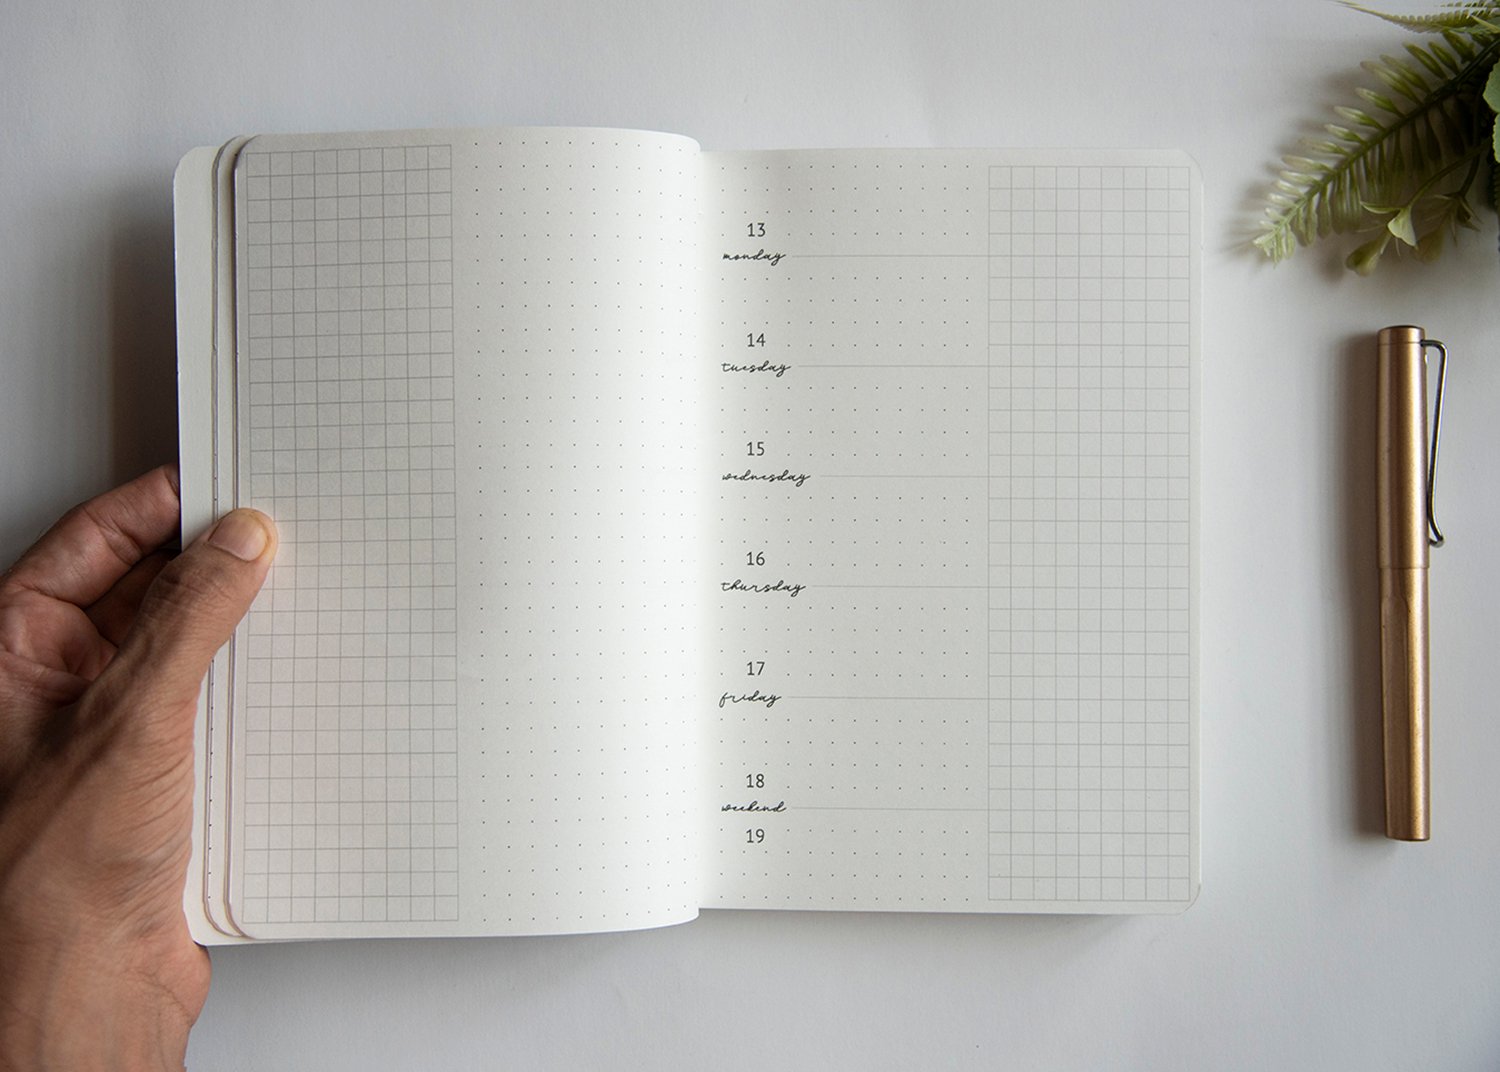 13
monday
14
tuesday
15
wednesday
16
thursday
17
friday
18
weekend
19